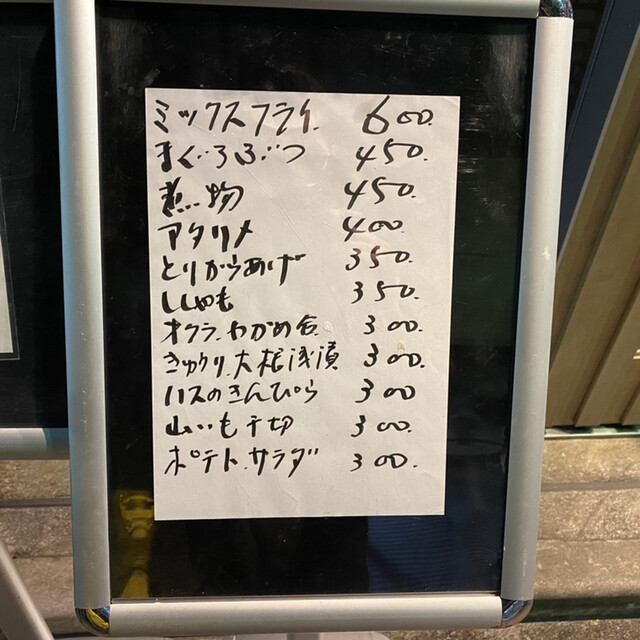 ミックスフライ. 600.
まぐろぶつ 450.
煮物 450.
アタリメ 400.
とりからあげ 350.
ししゃも 350.
オクラ.わかめ合. 300.
きゅうり.大根浅漬 300.
ハスのきんぴら 300
山いも千切 300.
ポテトサラダ 300.